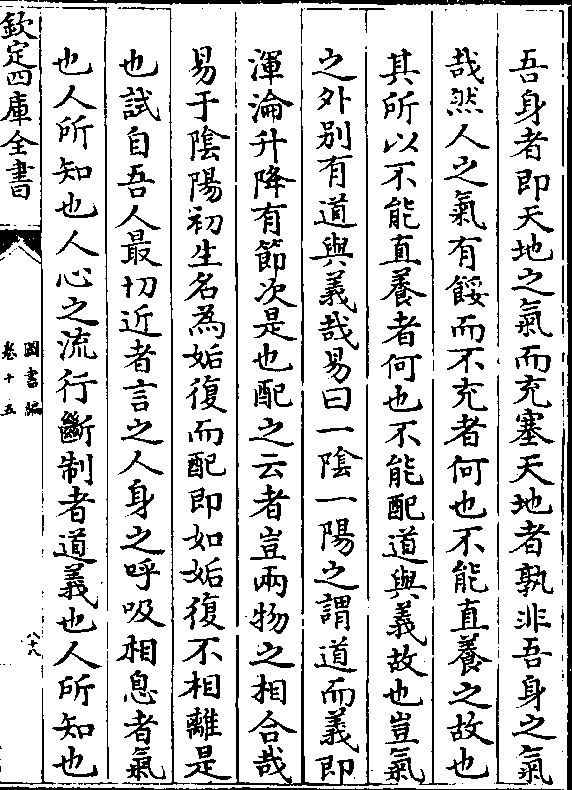 吾身者即天地之氣而充塞天地者孰非吾身之氣
哉然人之氣有餒而不充者何也不能直養之故也
其所以不能直養者何也不能配道與義故也豈氣
之外别有道與義哉易曰一陰一陽之謂道而義即
渾淪升降有節次是也配之云者豈兩物之相合哉
易于陰陽初生名為姤復而配即如姤復不相離是
也試自吾人最切近者言之人身之呼吸相息者氣
也人所知也人心之流行斷制者道義也人所知也
欽定四庫全書
圖書編
卷十五
八十八